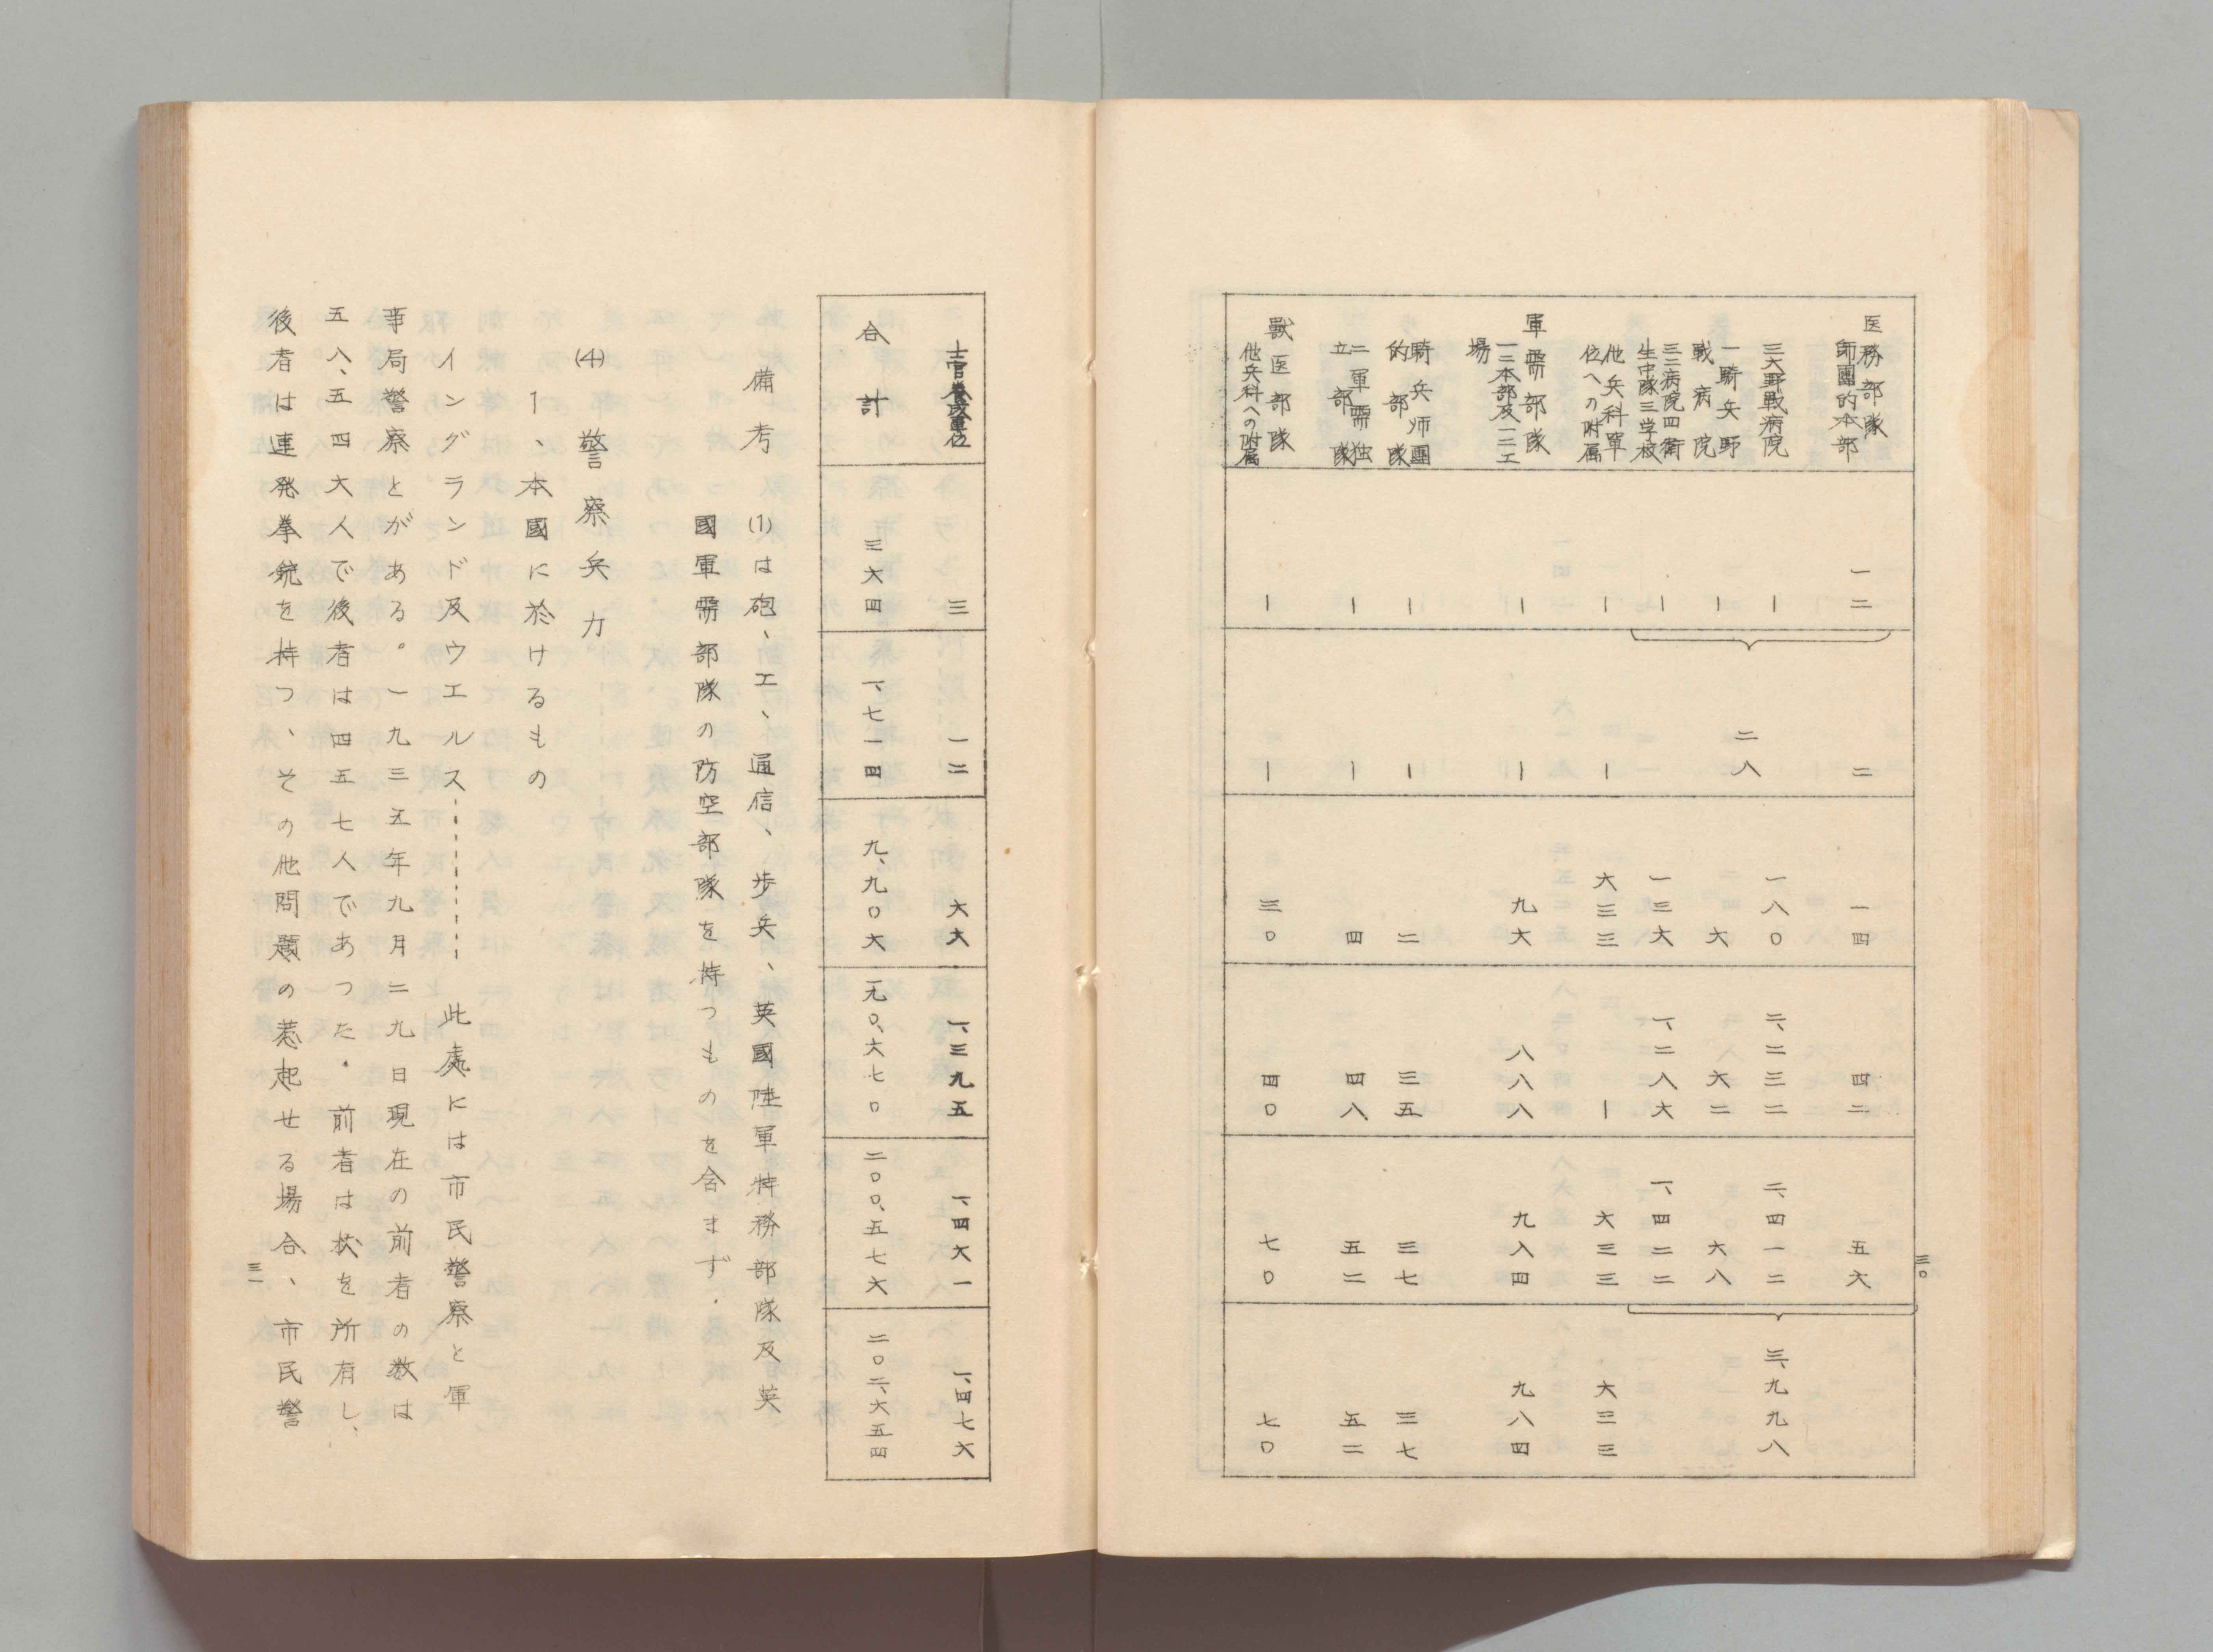 三〇
医務部隊
師團的本部
一二
二
一四
四二
五六
三六野戰病院
｜
一八〇
二、二三二
二、四一二
一騎兵野
戰病院
｜
六
六二
六八
三三病院四衛
生中隊三学校
｜
一三六
一、二八六
一、四二二
二八
三、九九八
他兵科單
位への附属
｜
｜
六三三
｜
六三三
六三三
軍需部隊
一二本部及一二工
場
｜
｜
九六
八八八
九八四
九八四
騎兵師團
的部隊
｜
｜
二
三五
三七
三七
二軍需独
立部隊
｜
｜
四
四八
五二
五二
獸医部隊
他兵科への附属
｜
｜
三〇
四〇
七〇
七〇
士官養成單位
三
一二
六六
一、三九五
一、四六一
一、四七六
合計
三六四
一、七一四
九、九〇六
一九〇、六七〇
二〇〇、五七六
二〇二、六五四
備考　(1)は砲、工、通信、歩兵、英國陸軍特務部隊及英
國軍需部隊の防空部隊を持つものを含まず.
(4)　警察兵力
1、本國に於けるもの
イングランド及ウエルス………　此處には市民警察と軍
事局警察とがある。一九三五年九月二九日現在の前者の数は
五八、五四六人で後者は四五七人であつた．前者は杖を所有し、
後者は連発拳銃を持つ、その他問題の惹起せる場合、市民警
三一